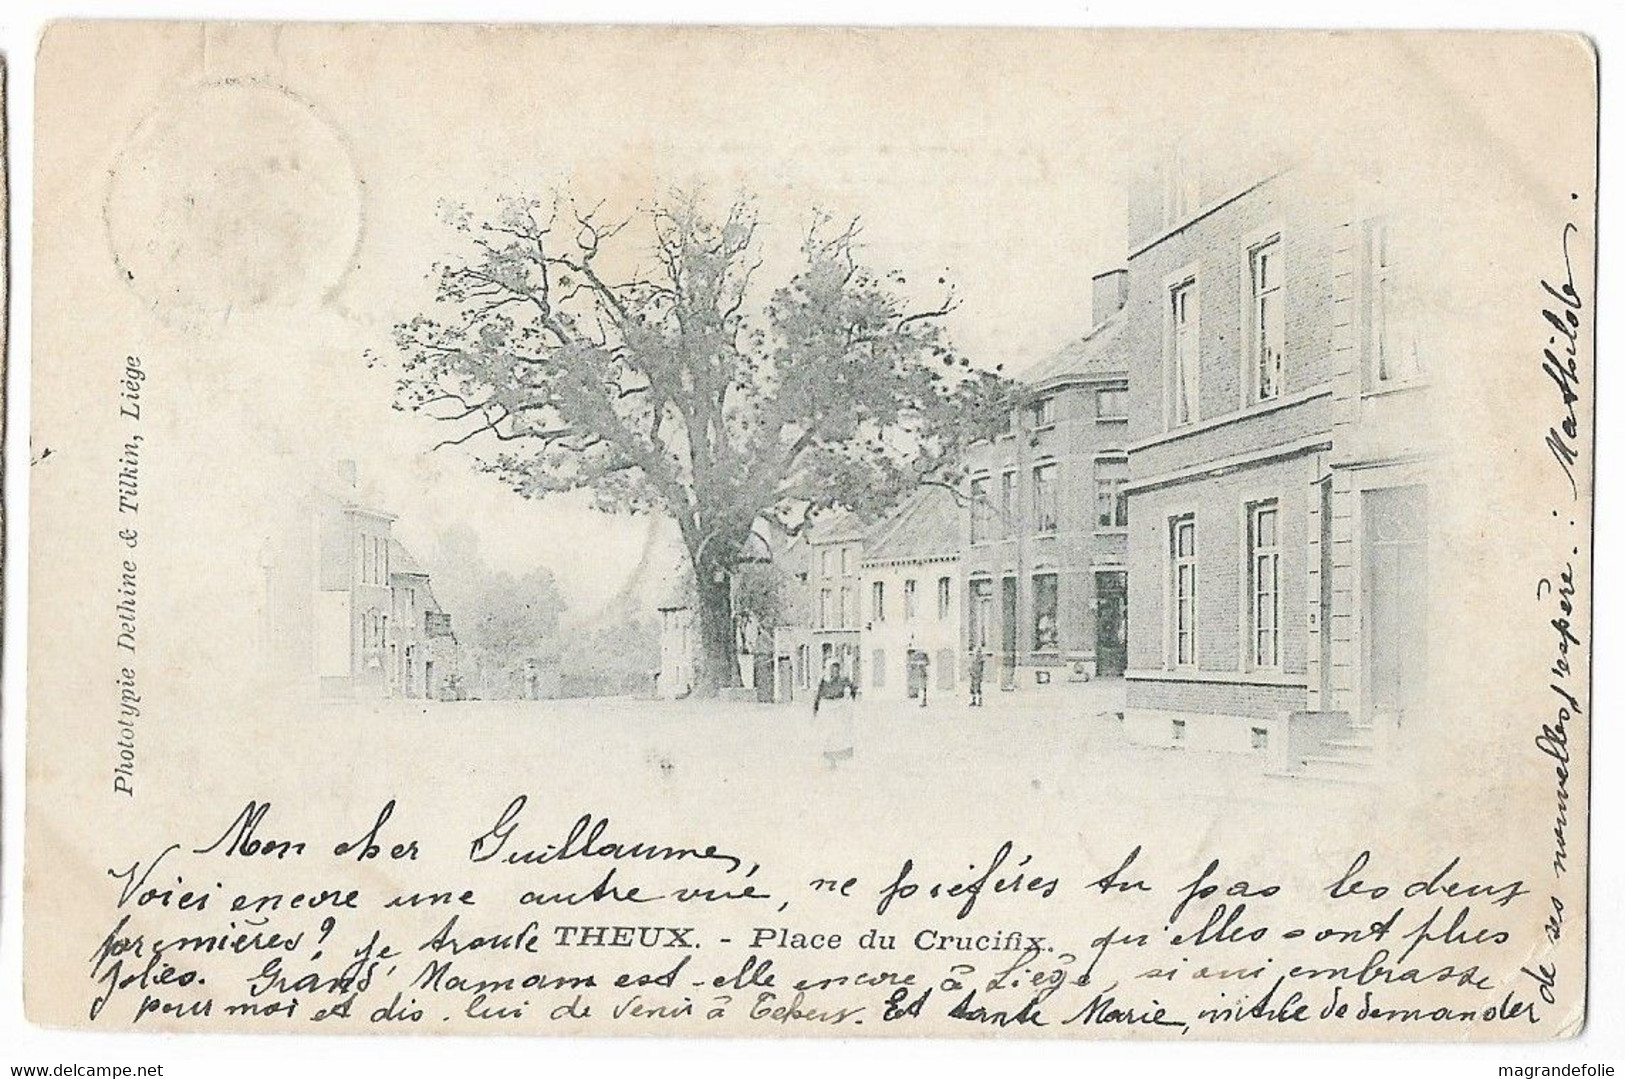 Phototypie Dethine & Tilkin, Liége
Mon cher Guillaume,
Voici encore une autre vue, ne préfères tu pas les deux
premières? je trouve THEUX. - Place du Crucifix. qu'elles sont plus
jolies. Grand' Mamam est-elle encore à Liège, si oui embrasse
pour moi et dis-lui de venir à Et tante Marie, inutile de demander
de ses nouvelles j'espère.: Mathilde.
www.delcampe.net
magrandefolie